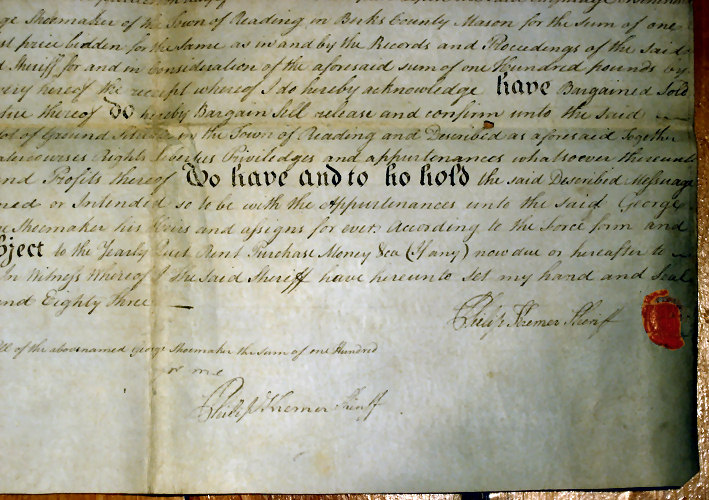 ge Shoemaker of the Town of Reading in Berks County Mason for the Sum of one
st price bidden for the Same as in and by the Records and Proceedings of the said
d Sheriff for and in Consideration of the aforesaid sum of one Hundred pounds by
very hereof the receipt whereof I do hereby acknowledge have Bargained Sold
thereof do hereby Bargain Sell release and confirm unto the said
Lot of Ground Situate in the Town of Reading and Described as aforesaid Together
atercourses Rights Liberties Priviledges and appurtenances whatsoever thereunto
and Profits thereof To have and to ho hold the said Described Messuage
ned or Intended so to be with the Appurtenances unto the said George
e Shoemaker his Heirs and assigns for ever. According to the Force form and
bject to the Yearly Quit Rent Purchase Money &ca (If any) now due or hereafter to
In Witness Whereof I the Said Sheriff have hereunto set my hand and Seal
and Eighty Three
Philip Kremer Sheriff
ll of the abovenamed George Shoemaker the sum of one Hundred
me
Philip Kremer Sheriff